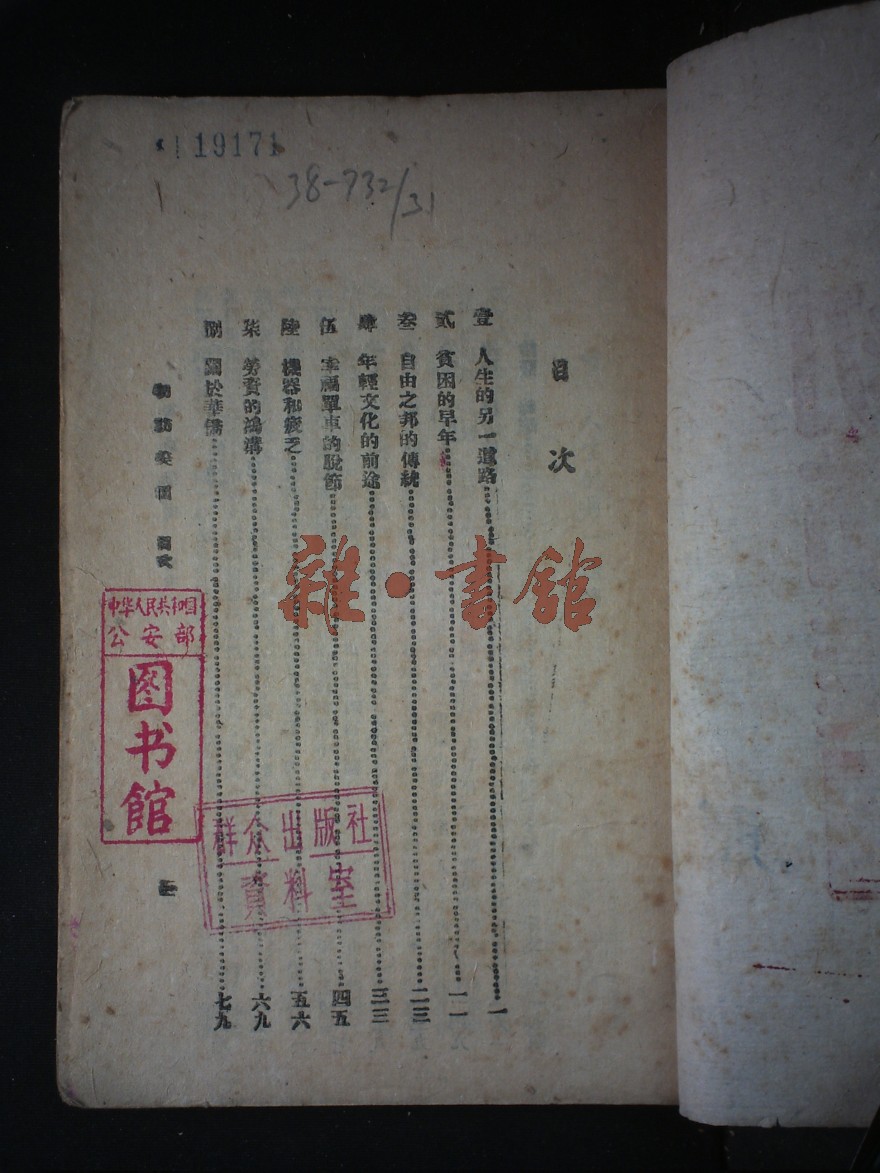 119171
38-732/31
目次
壹 人生的另一道路 一
貳 貧困的早年 一一
叁 自由之邦的傳統 二三
肆 年輕文化的前途 三三
伍 幸福單車的脫節 四五
陸 機器和疲乏 五六
柒 勞資的鴻溝 六九
捌 關於華僑 七九
初訪美國 目次
中华人民共和国
公安部
图书館
群众出版社
資料室
雜·書館